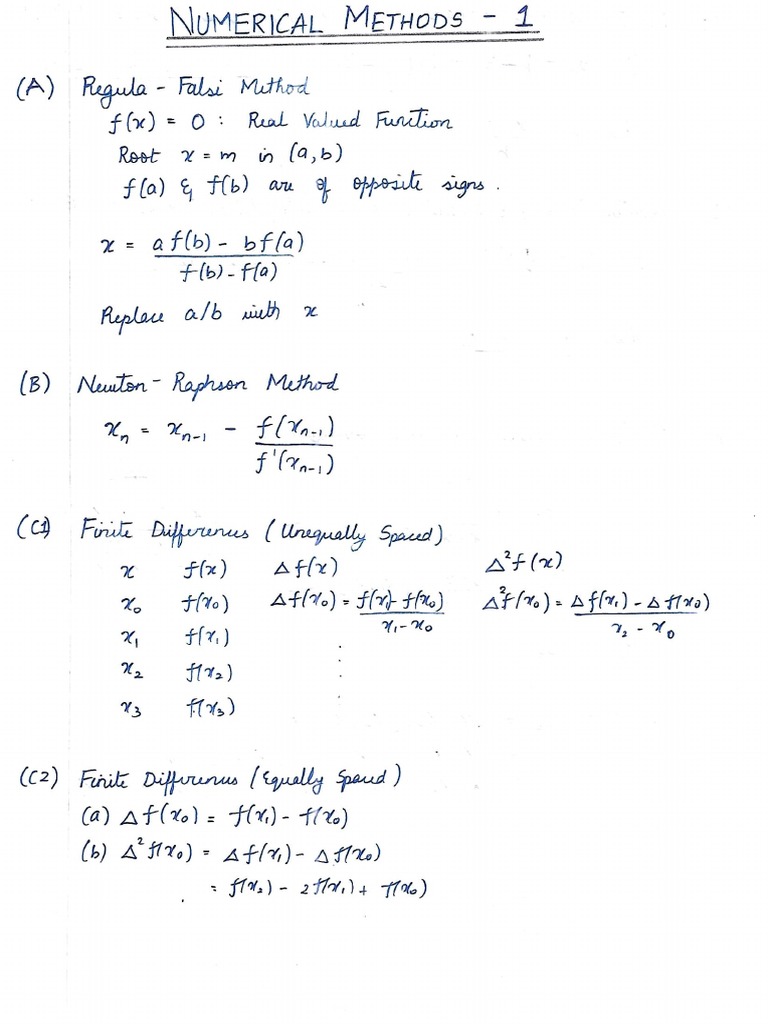 NUMERICAL METHODS - 1
(A) Regula - Falsi Method
f(x) = 0 : Real Valued Function
Root x = m in (a,b)
f(a) & f(b) are of opposite signs.
x = a f(b) - b f(a)
f(b) - f(a)
Replace a/b with x
(B) Newton - Raphson Method
xₙ = xₙ₋₁ - f(xₙ₋₁)
f'(xₙ₋₁)
(C1) Finite Differences (Unequally Spaced)
x f(x) Δf(x) Δ²f(x)
x₀ f(x₀) Δf(x₀) = f(x₁) - f(x₀) Δ²f(x₀) = Δf(x₁) - Δf(x₀)
x₁ - x₀ x₂ - x₀
x₁ f(x₁)
x₂ f(x₂)
x₃ f(x₃)
(C2) Finite Differences (Equally Spaced)
(a) Δf(x₀) = f(x₁) - f(x₀)
(b) Δ²f(x₀) = Δf(x₁) - Δf(x₀)
= f(x₂) - 2f(x₁) + f(x₀)